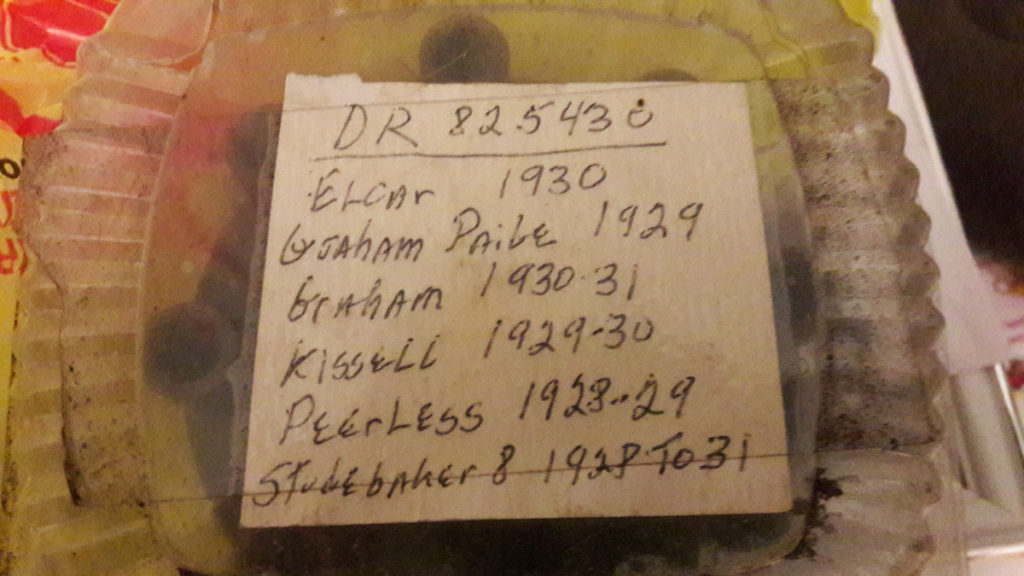 DR 825430
ELCAr 1930
GrAhAM PAiGE 1929
GrAhAM 1930-31
KISSELL 1929-30
PEErLESS 1928-29
STudEbAKEr 8 1928 TO 31